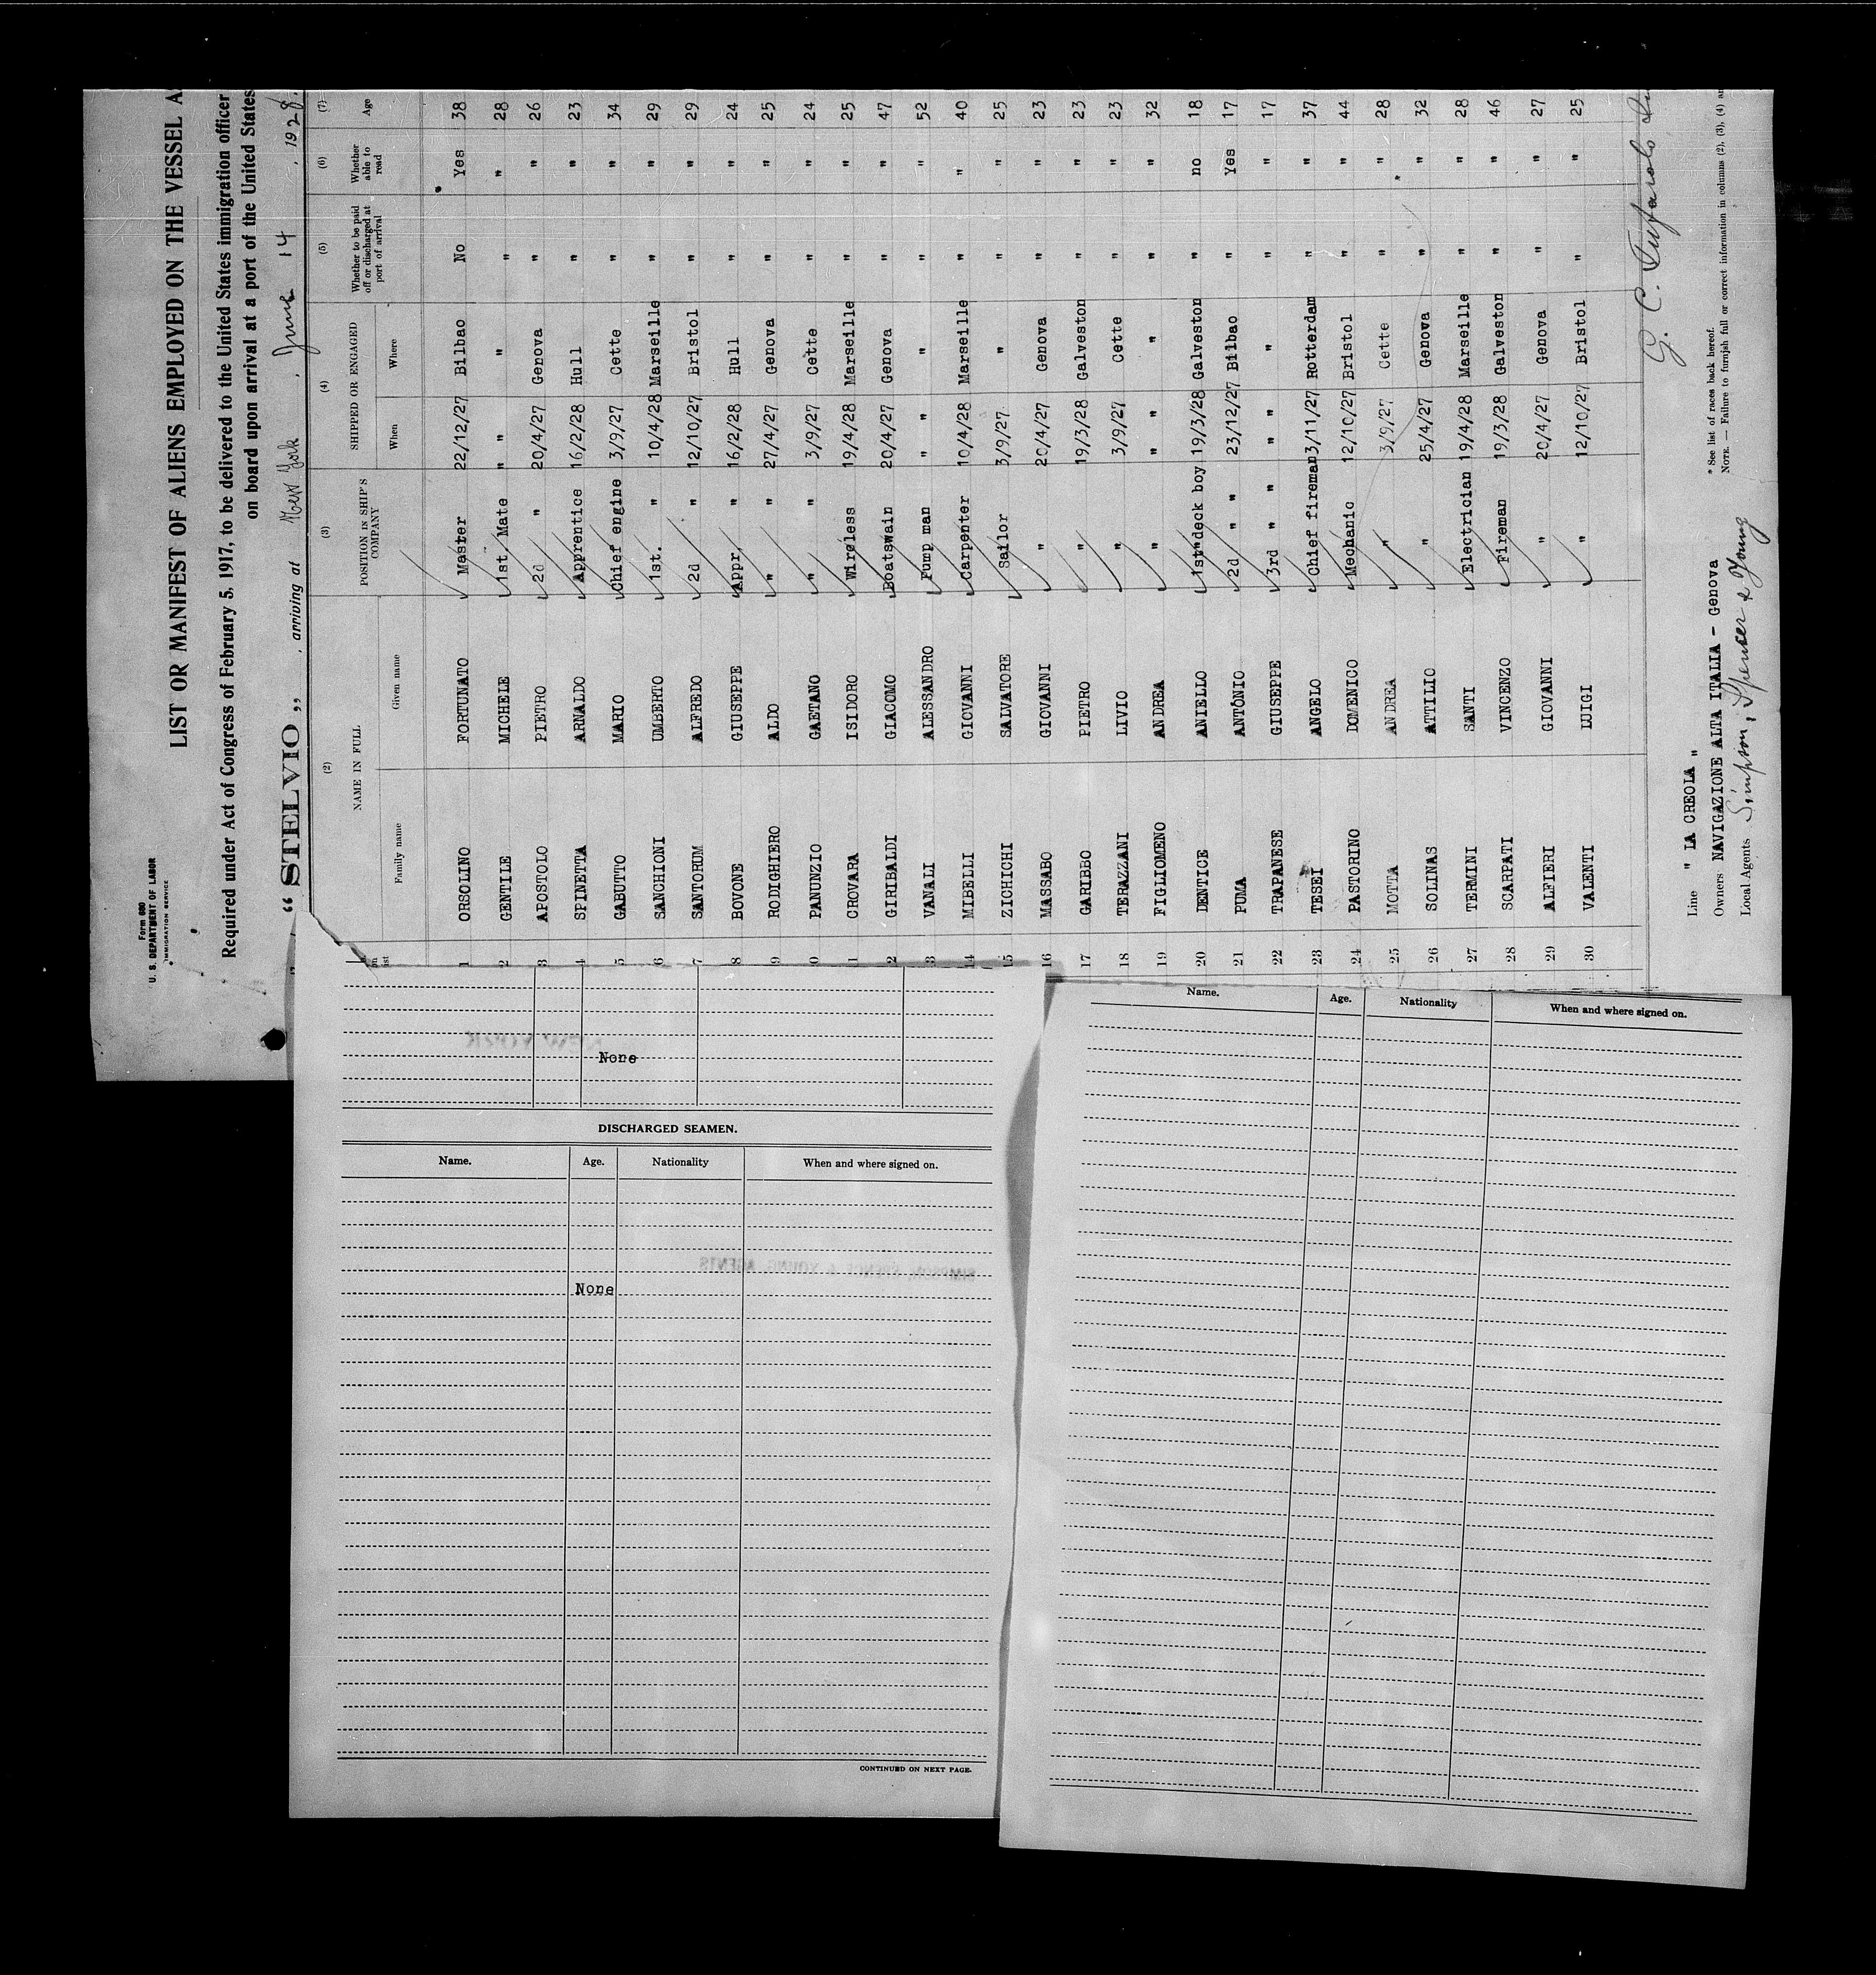 Form 680
U. S. DEPARTMENT OF LABOR
IMMIGRATION SERVICE
LIST OR MANIFEST OF ALIENS EMPLOYED ON THE VESSEL A
Required under Act of Congress of February 5, 1917, to be delivered to the United States immigration officer
on board upon arrival at a port of the United States
“ STELVIO „ , arriving at New York , June 14 , 1928.
(2) (3) (4) (5) (6) (7)
NAME IN FULL POSITION IN SHIP'S COMPANY SHIPPED OR ENGAGED Whether to be paid off or discharged at port of arrival Whether able to read Age
Family name Given name When Where
1 ORSOLINO FORTUNATO Master 22/12/27 Bilbao No Yes 38
2 GENTILE MICHELE 1st Mate " " " " 28
3 APOSTOLO PIETRO 2d " 20/4/27 Genova " " 26
4 SPINETTA ARNALDO Apprentice 16/2/28 Hull " " 23
5 GABUTTO MARIO Chief engine 3/9/27 Cette " " 34
6 SANCHIONI UMBERTO 1st. " 10/4/28 Marseille " " 29
7 SANTORUM ALFREDO 2d " 12/10/27 Bristol " " 29
8 BOVONE GIUSEPPE Appr. " 16/2/28 Hull " " 24
9 RODIGHIERO ALDO " " 27/4/27 Genova " " 25
0 PANUNZIO GAETANO " " 3/9/27 Cette " " 24
1 CROVARA ISIDORO Wireless 19/4/28 Marseille " " 25
2 GIRIBALDI GIACOMO Boatswain 20/4/27 Genova " " 47
3 VANALI ALESSANDRO Pump man " " " " 52
14 MIBELLI GIOVANNI Carpenter 10/4/28 Marseille " " 40
15 ZICHICHI SALVATORE Sailor 3/9/27 " " " 25
16 MASSABO GIOVANNI " 20/4/27 Genova " " 23
17 GARIBBO PIETRO " 19/3/28 Galveston " " 23
18 TERAZZANI LIVIO " 3/9/27 Cette " " 23
19 FIGLIOMENO ANDREA " " " " " 32
20 DENTICE ANIELLO 1st deck boy 19/3/28 Galveston " no 18
21 PUMA ANTONIO 2d " " 23/12/27 Bilbao " Yes 17
22 TRAPANESE GIUSEPPE 3rd " " " " " " 17
23 TESEI ANGELO Chief fireman 3/11/27 Rotterdam " " 37
24 PASTORINO DOMENICO Mechanic 12/10/27 Bristol " " 44
25 MOTTA ANDREA " 3/9/27 Cette " " 28
26 SOLINAS ATTILIO " 25/4/27 Genova " " 32
27 TERMINI SANTI Electrician 19/4/28 Marseille " " 28
28 SCARPATI VINCENZO Fireman 19/3/28 Galveston " " 46
29 ALFIERI GIOVANNI " 20/4/27 Genova " " 27
30 VALENTI LUIGI " 12/10/27 Bristol " " 25
Line " LA CREOLA "
Owners NAVIGAZIONE ALTA ITALIA - Genova
Local Agents Simpson, Spencer & Young
* See list of races back hereof.
NOTE. — Failure to furnish full or correct information in columns (2), (3), (4) an
G. C.
NEW YORK
None
DISCHARGED SEAMEN.
Name. Age. Nationality When and where signed on.
SIMPSON, SPENCE & YOUNG, AGENTS
None
CONTINUED ON NEXT PAGE.
Name. Age. Nationality When and where signed on.